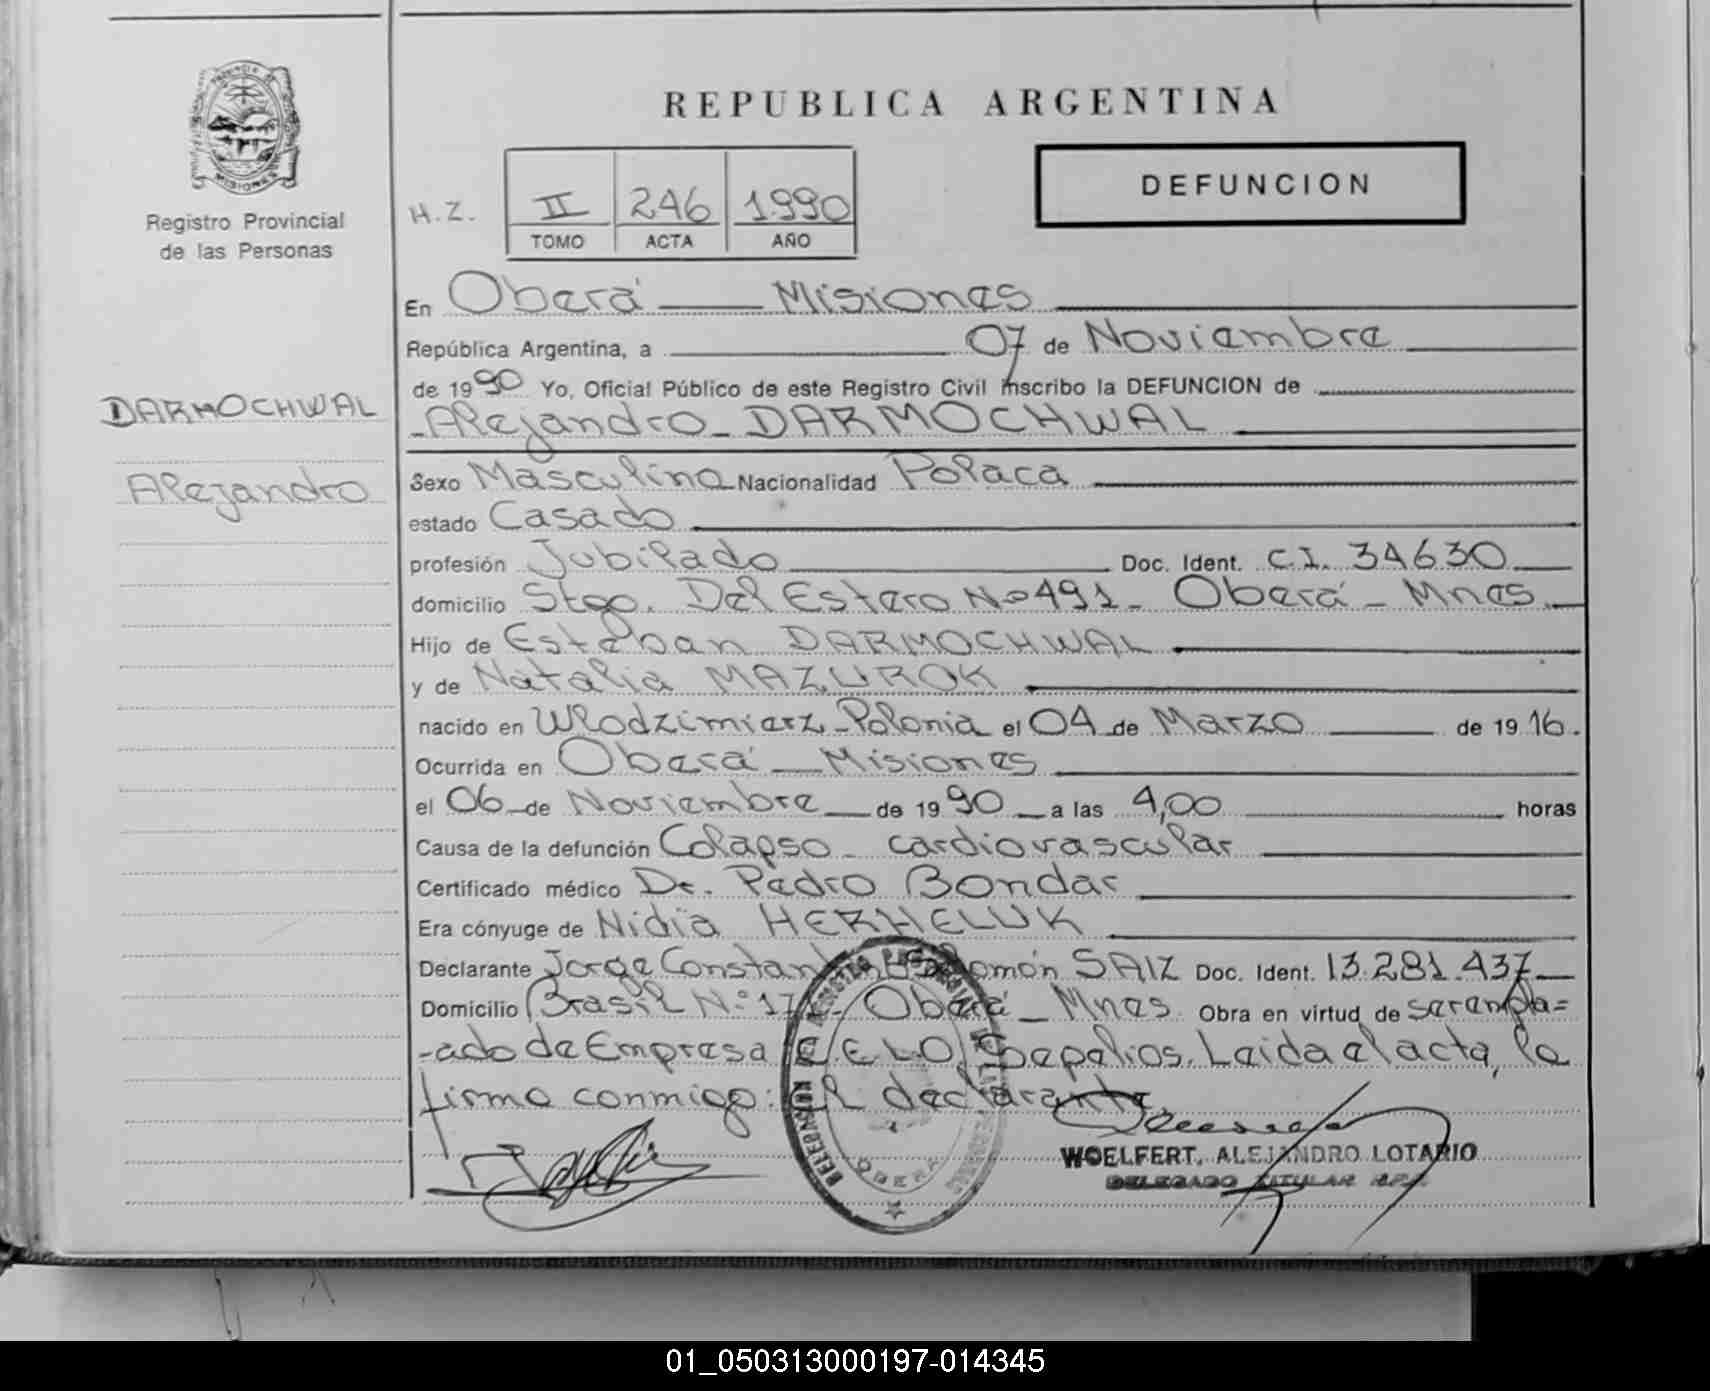 PROVINCIA DE
MISIONES
Registro Provincial
de las Personas
DARMOCHWAL
Alejandro
REPUBLICA ARGENTINA
DEFUNCION
H.Z.
II 246 1990
TOMO ACTA AÑO
En Oberá Misiones
República Argentina, a 07 de Noviembre
de 1990 Yo, Oficial Público de este Registro Civil inscribo la DEFUNCION de
-Alejandro- DARMOCHWAL
Sexo Masculino Nacionalidad Polaca
estado Casado
profesión Jubilado Doc. Ident. C.I. 34630
domicilio Stgo. Del Estero Nº 491- Oberá - Mnes.
Hijo de Esteban DARMOCHWAL
y de Natalia MAZUROK
nacido en Wlodzimierz-Polonia el 04 de Marzo de 1916.
Ocurrida en Oberá - Misiones
el 06 de Noviembre de 1990 a las 4,00 horas
Causa de la defunción Colapso - cardiovascular
Certificado médico Dr. Pedro Bondar
Era cónyuge de Nidia HERHELUK
Declarante Jorge Constantino Ramón SAIZ Doc. Ident. 13.281.437
Domicilio Brasil N° - Oberá - Mnes. Obra en virtud de ser empla=
-ado de Empresa C.E.L.O. Sepelios. Leida el acta, lo
firma conmigo: el declarante.
OBERA
WOELFERT, ALEJANDRO LOTARIO
DELEGADO TITULAR R.P.P.
01_050313000197-014345